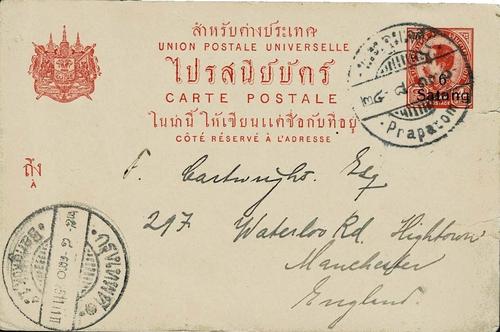 สำหรับต่างประเทศ
UNION POSTALE UNIVERSELLE
ไปรสนียบัตร์
CARTE POSTALE
ในน่านี้ ให้เขียนแต่ชื่อกับที่อยู่
CÔTÉ RÉSERVÉ À L'ADRESSE
6
Satang
Prapatom
ถึง
À
F. Cartwright. Esq
297 Waterloo Rd, Hightown
Manchester
England.
กรุงเทพฯ
Bangkok